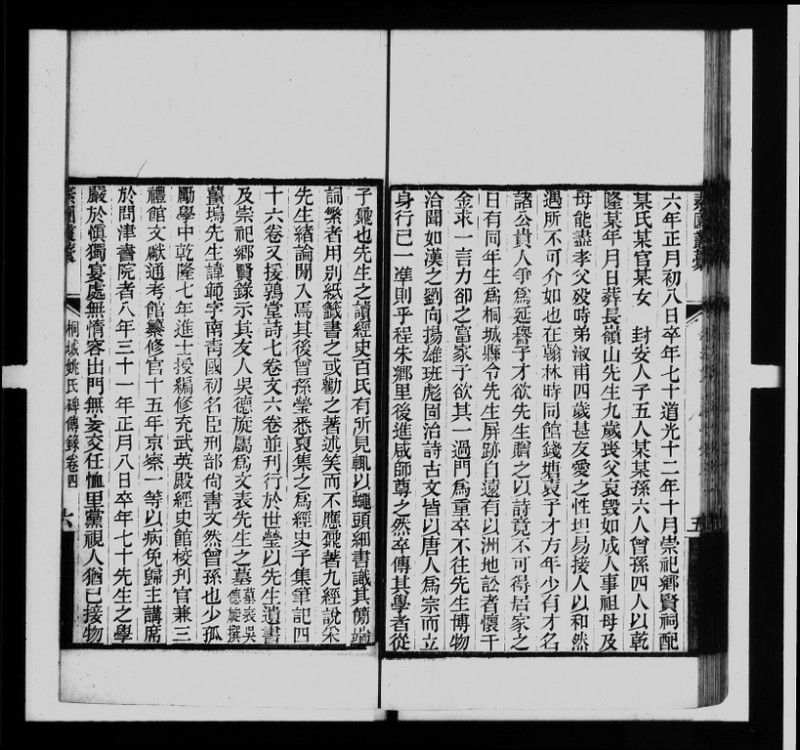 六年正月初八日卒年七十道光十二年十月崇祀鄉賢祠配
某氏某官某女　封安人子五人某某孫六人曾孫四人以乾
隆某年月日葬長嶺山先生九歲喪父哀毀如成人事祖母及
母能盡孝父歿時弟淑甫四歲甚友愛之性坦易接人以和然
遇所不可介如也在翰林時同館錢塘袁子才方年少有才名
諸公貴人爭為延譽子才欲先生贈之以詩竟不可得居家之
日有同年生為桐城縣令先生屏跡自遠有以洲地訟者懷千
金求一言力卻之富家子欲其一過門為重卒不往先生博物
洽聞如漢之劉向揚雄班彪固治詩古文皆以唐人為宗而立
身行己一準則乎程朱鄉里後進咸師尊之然卒傳其學者從
子鼐也先生之讀經史百氏有所見輒以蠅頭細書識其簡端
詞繁者用別紙籤書之或勸之著述笑而不應鼐著九經說采
先生緒論閒入焉其後曾孫瑩悉裒集之為經史子集筆記四
十六卷又援鶉堂詩七卷文六卷並刊行於世瑩以先生遺書
及崇祀鄉賢錄示其友人吳德旋屬為文表先生之墓墓表吳德旋撰
薑塢先生諱範字南菁國初名臣刑部尚書文然曾孫也少孤
勵學中乾隆七年進士授編修充武英殿經史館校刊官兼三
禮館文獻通考館纂修官十五年京察一等以病免歸主講席
於問津書院者八年三十一年正月八日卒年七十先生之學
嚴於慎獨宴處無惰容出門無妄交任恤里黨視人猶己接物
桐城姚氏碑傳錄卷四
六